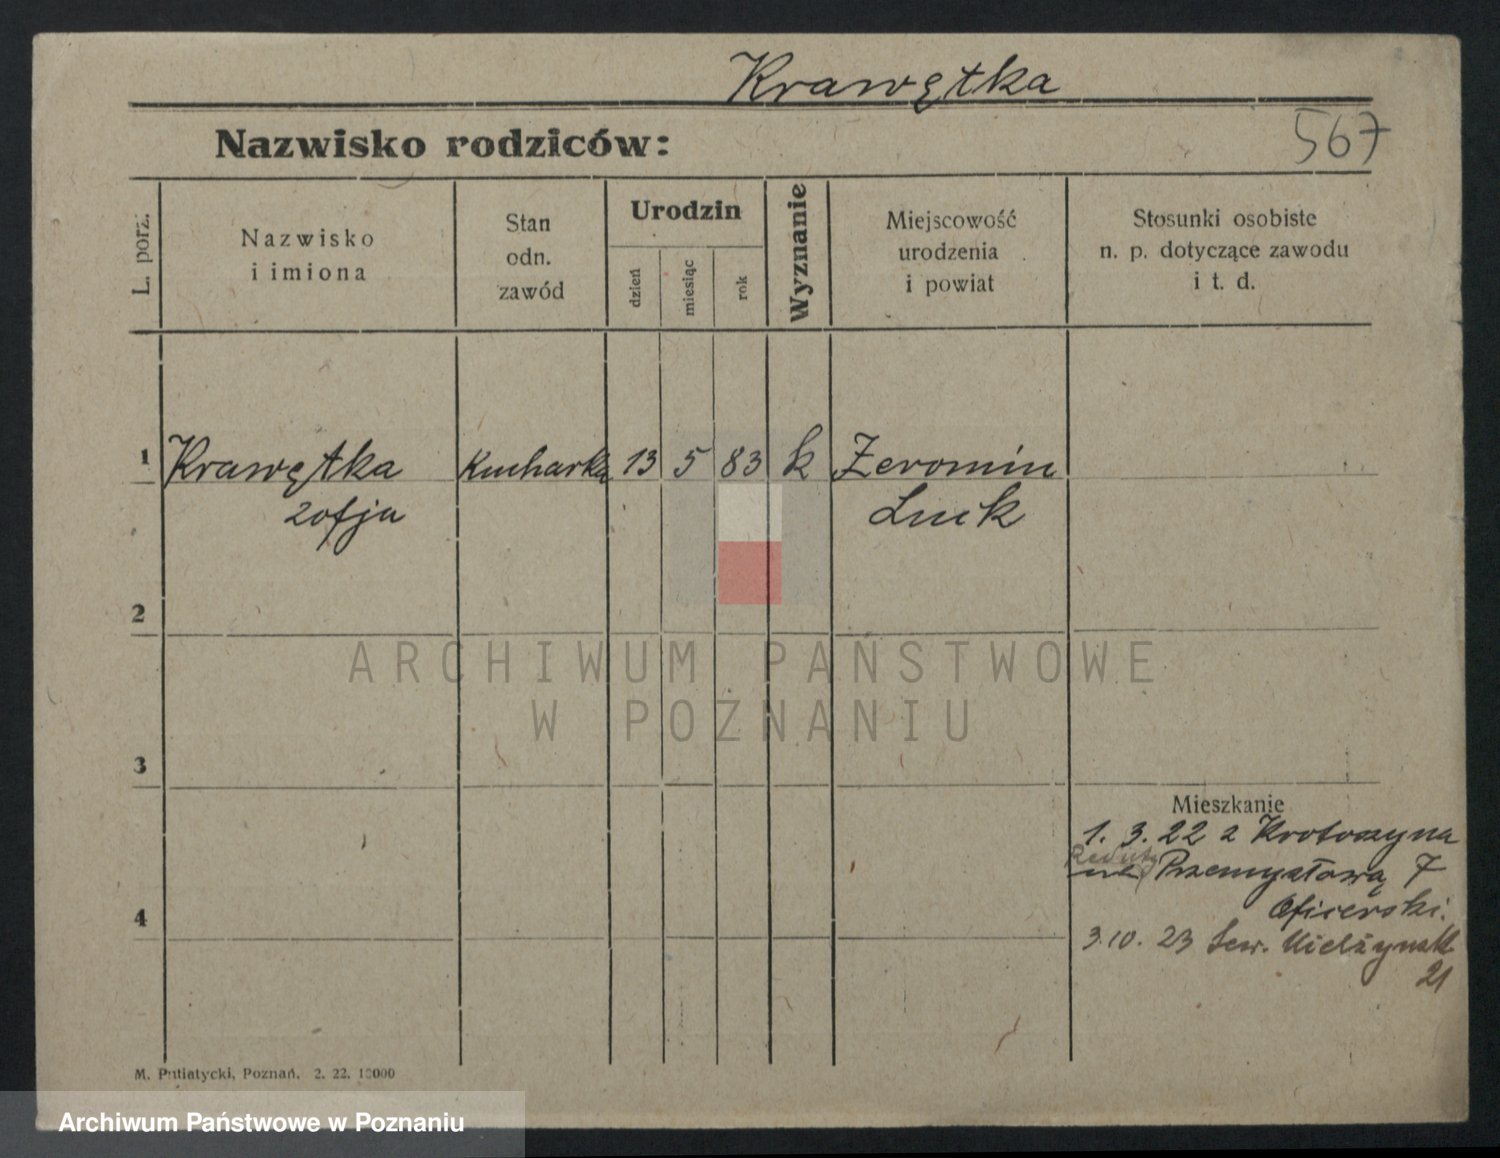 Krawętka
Nazwisko rodziców:
567
L. porz.
Nazwisko
i imiona
Stan
odn.
zawód
Urodzin
dzień
miesiąc
rok
Wyznanie
Miejscowość
urodzenia
i powiat
Stosunki osobiste
n. p. dotyczące zawodu
i t. d.
1 Krawętka Kucharka 13 5 83 k Żeromin
Zofja
2
ARCHIWUM PAŃSTWOWE
W POZNANIU
3
Mieszkanie
1. 3. 22 z Krotoszyna
Przemysłową 7
Oficerski.
4
3.10. 23 Sew. Mielżynsk
21
M. Putiatycki, Poznań. 2. 22. 10000
Archiwum Państwowe w Poznaniu